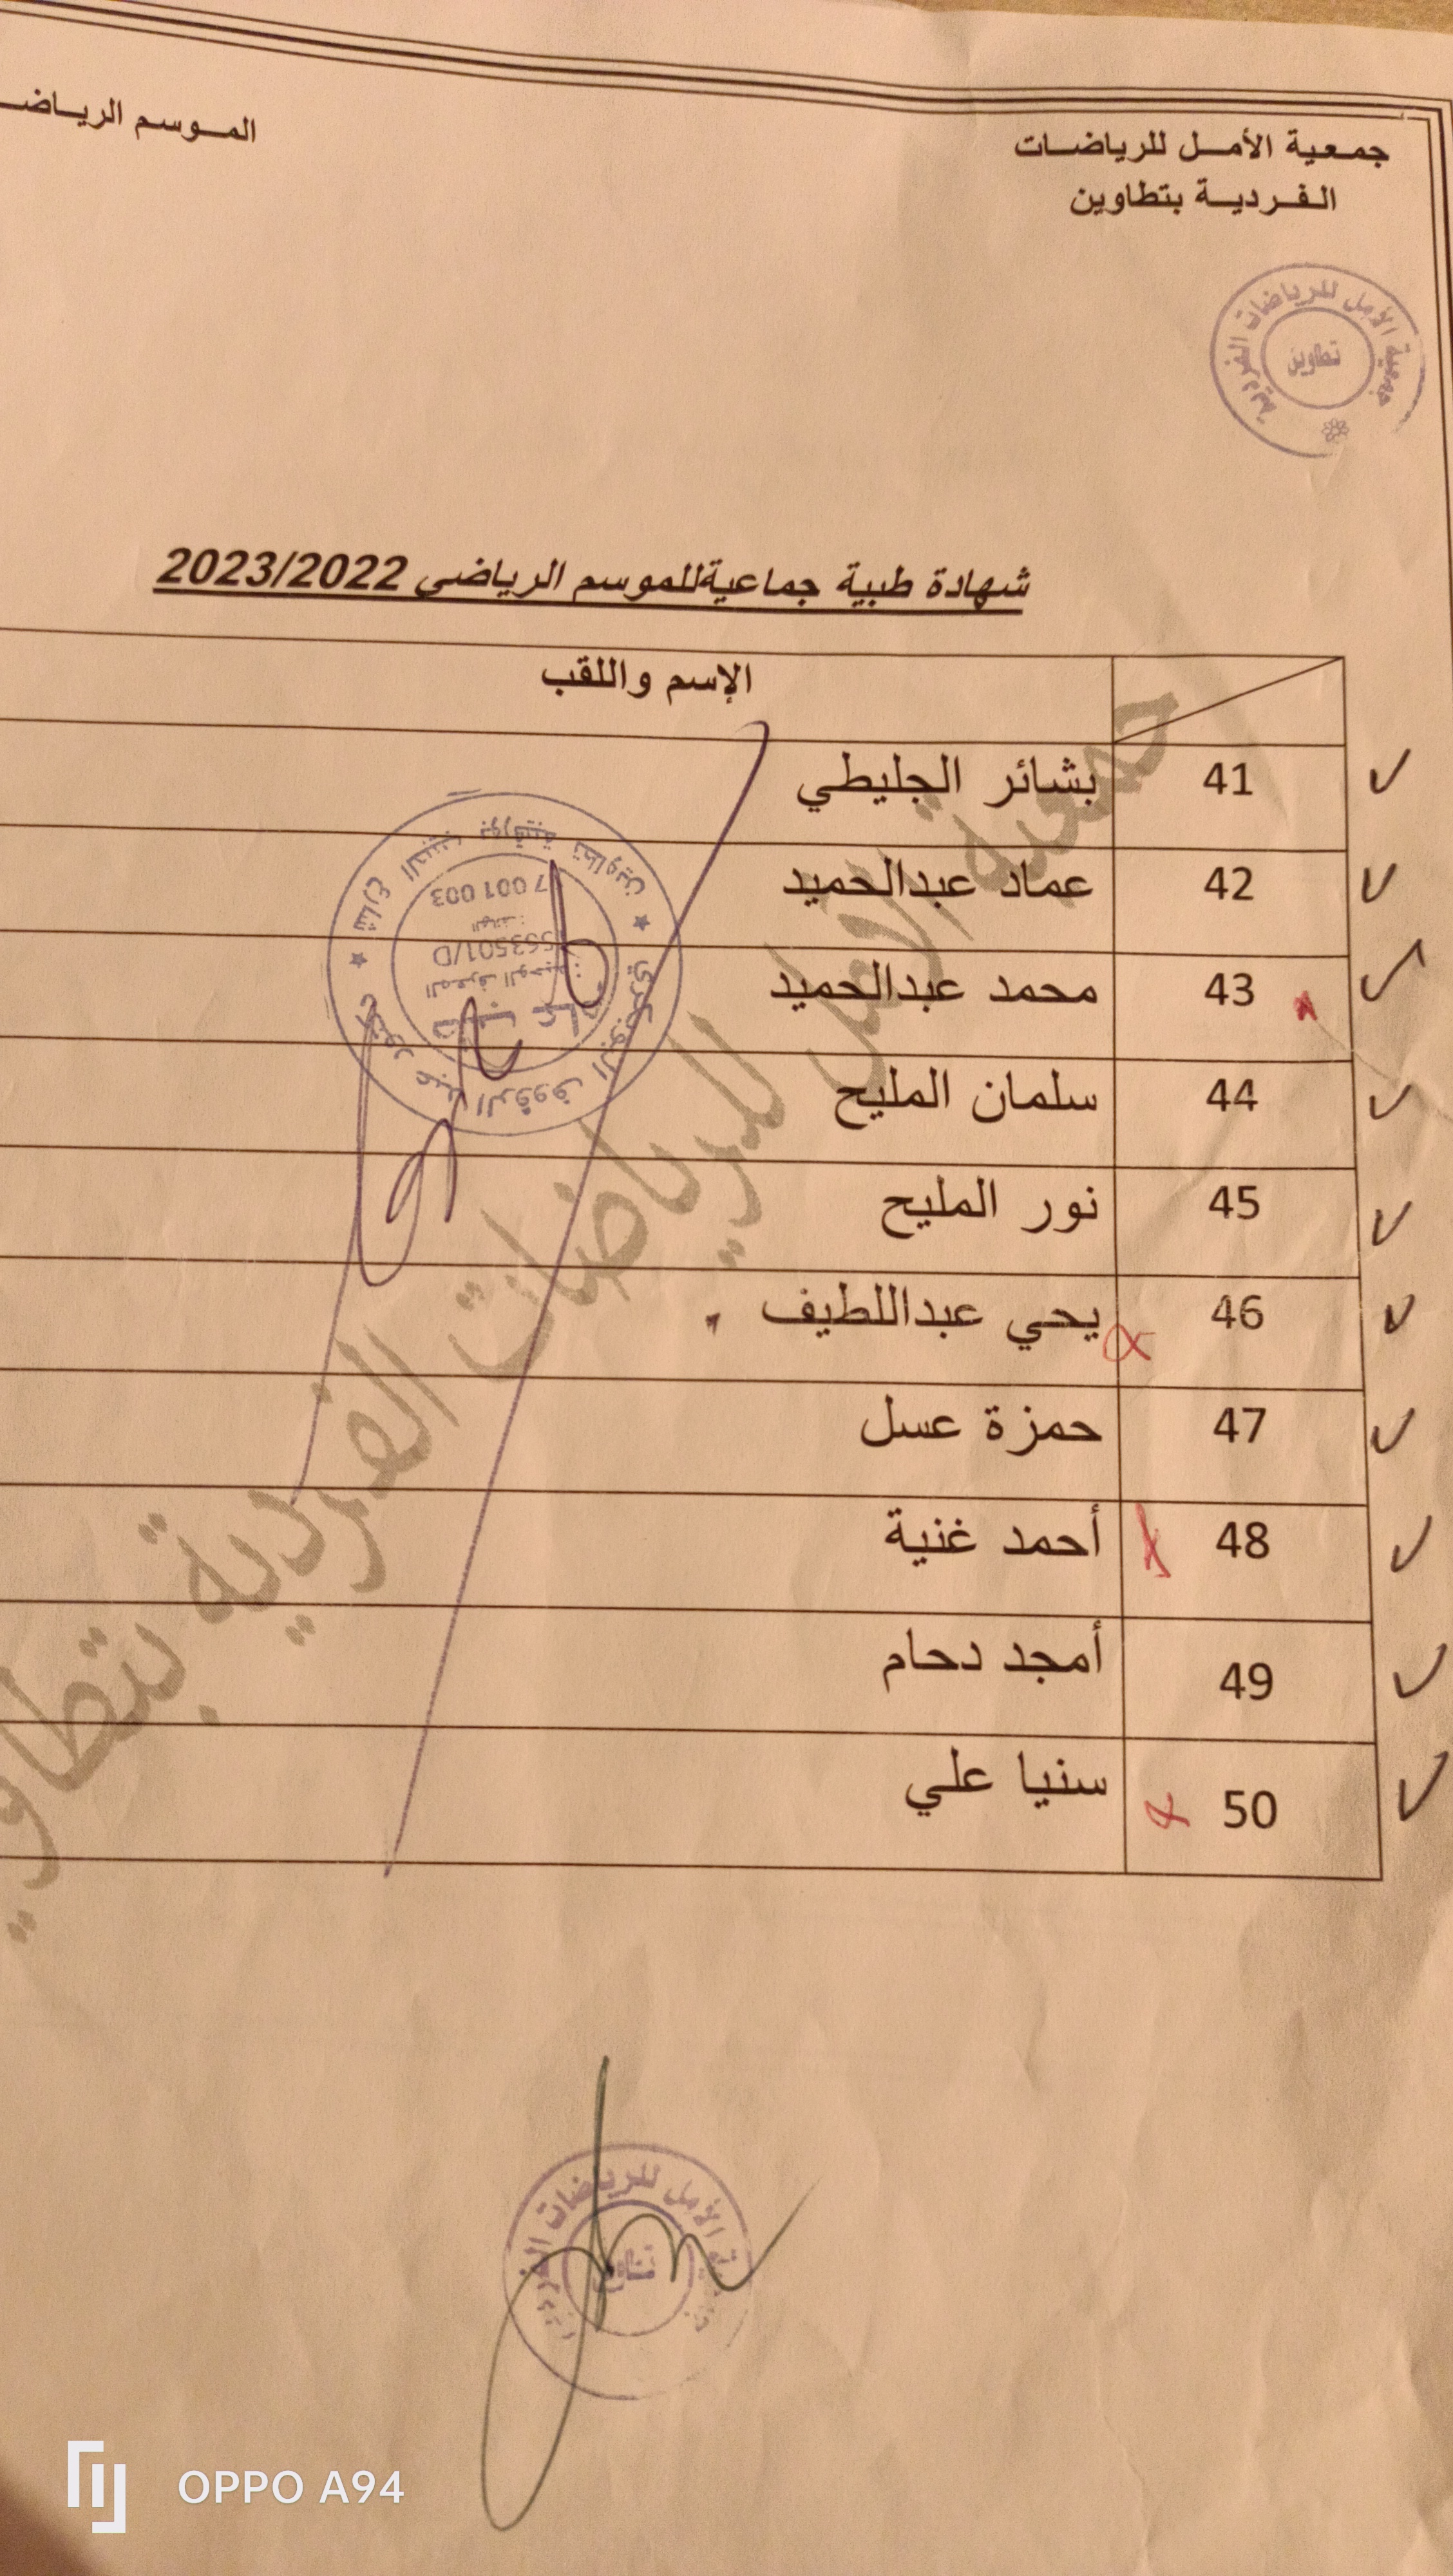 جمعية الأمل للرياضات
الفردية بتطاوين
الموسم الرياض
جمعية الأمل للرياضات الفردية
تطاوين
شهادة طبية جماعيةللموسم الرياضي 2023/2022
الإسم واللقب
41 بشائر الجليطي
42 عماد عبدالحميد
43 محمد عبدالحميد
44 سلمان المليح
45 نور المليح
46 يحي عبداللطيف
47 حمزة عسل
48 أحمد غنية
49 أمجد دحام
50 سنيا علي
شارع الحبيب بورقيبة تطاوين
7 001 003
الهاتف:
563501/D
المعرف الوحيد
طب عام
جمعية الأمل للرياضات الفردية بتطاوي
الأمل للرياضات الفردية
تطاوين
OPPO A94